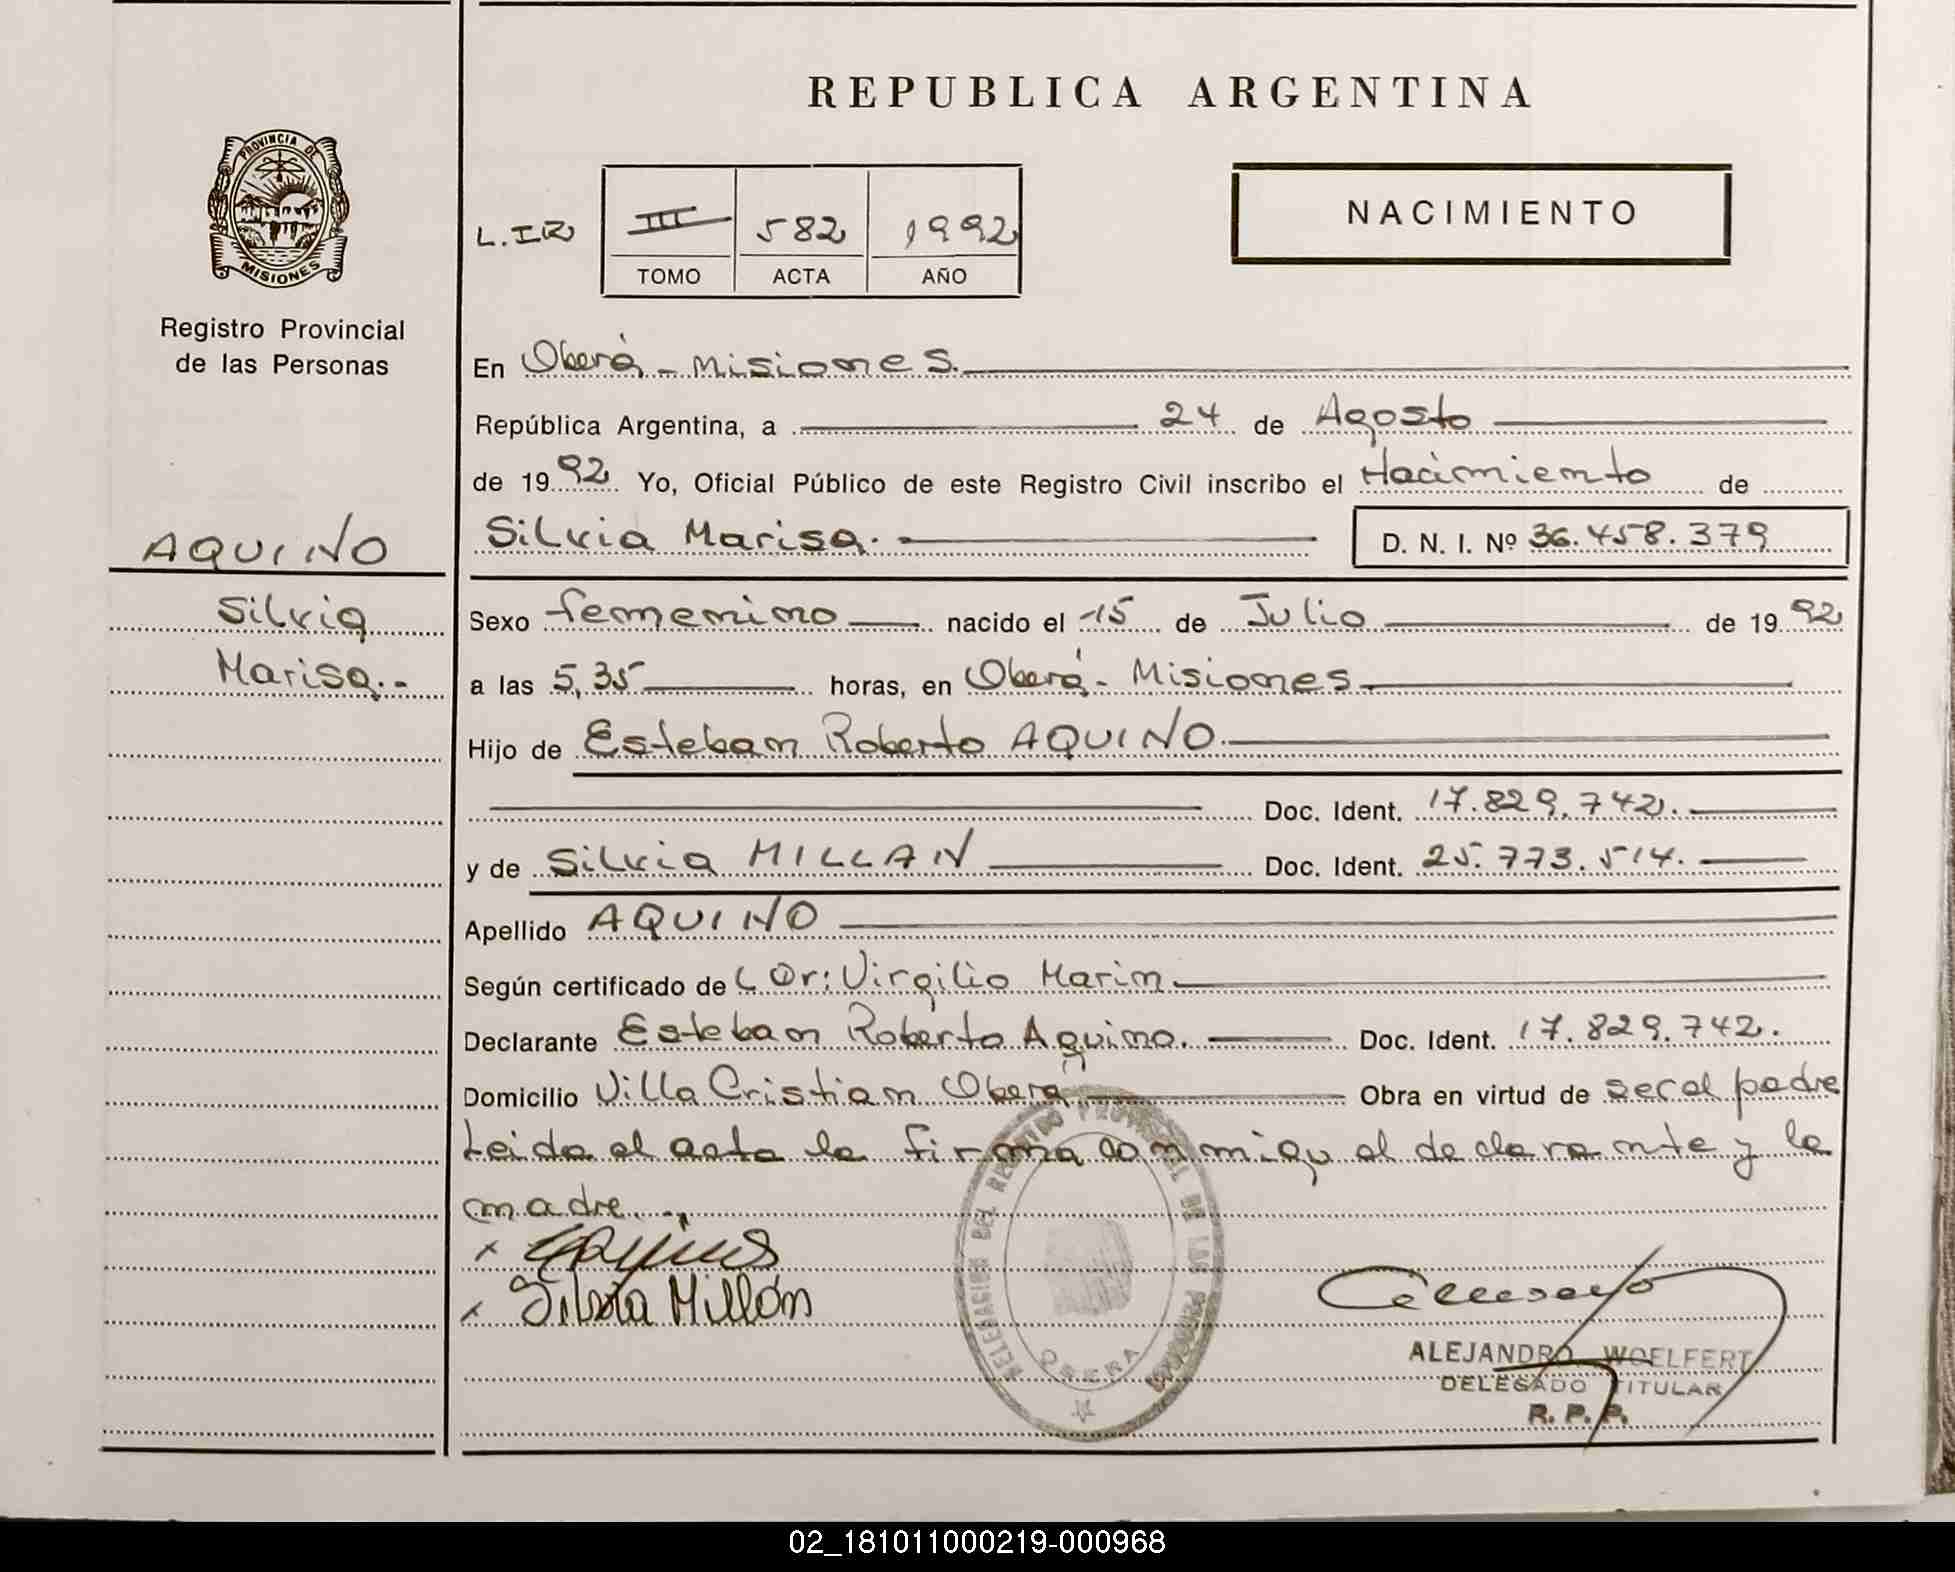 REPUBLICA ARGENTINA
PROVINCIA DE
MISIONES
Registro Provincial
de las Personas
L.IR
III 582 1992
TOMO ACTA AÑO
NACIMIENTO
En Oberá - Misiones.
República Argentina, a 24 de Agosto
de 1992 Yo, Oficial Público de este Registro Civil inscribo el Nacimiento de
Silvia Marisa. D. N. I. Nº 36.458.379
AQUINO
Silvia
Marisa.-
Sexo femenino nacido el 15 de Julio de 1992
a las 5,35 horas, en Oberá - Misiones
Hijo de Esteban Roberto AQUINO.
Doc. Ident. 17.829.742.
y de Silvia MILLAN Doc. Ident. 25.773.514.
Apellido AQUINO
Según certificado de Dr: Virgilio Marin
Declarante Esteban Roberto Aquino. Doc. Ident. 17.829.742.
Domicilio Villa Cristian Obera Obra en virtud de ser el padre
Leida el acta la firma conmigo el declarante y la
madre.-
x
x Silvia Millán
DELEGACION DEL REGISTRO PROVINCIAL DE LAS PERSONAS
OBERA
ALEJANDRO WOELFERT
DELEGADO TITULAR
R. P. P.
02_181011000219-000968